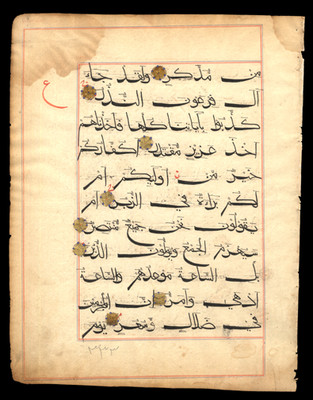 من مدكر ولقد جاء
ع
آل فرعون النذر
كذبوا بآياتنا كلها فأخذناهم
أخذ عزيز مقتدر أكفاركم
خير من أولئكم أم
لكم براءة في الزبر أم
يقولون نحن جميع منتصر
سيهزم الجمع ويولون الدبر
بل الساعة موعدهم والساعة
أدهى وأمر إن المجرمين
في ضلال وسعر يوم